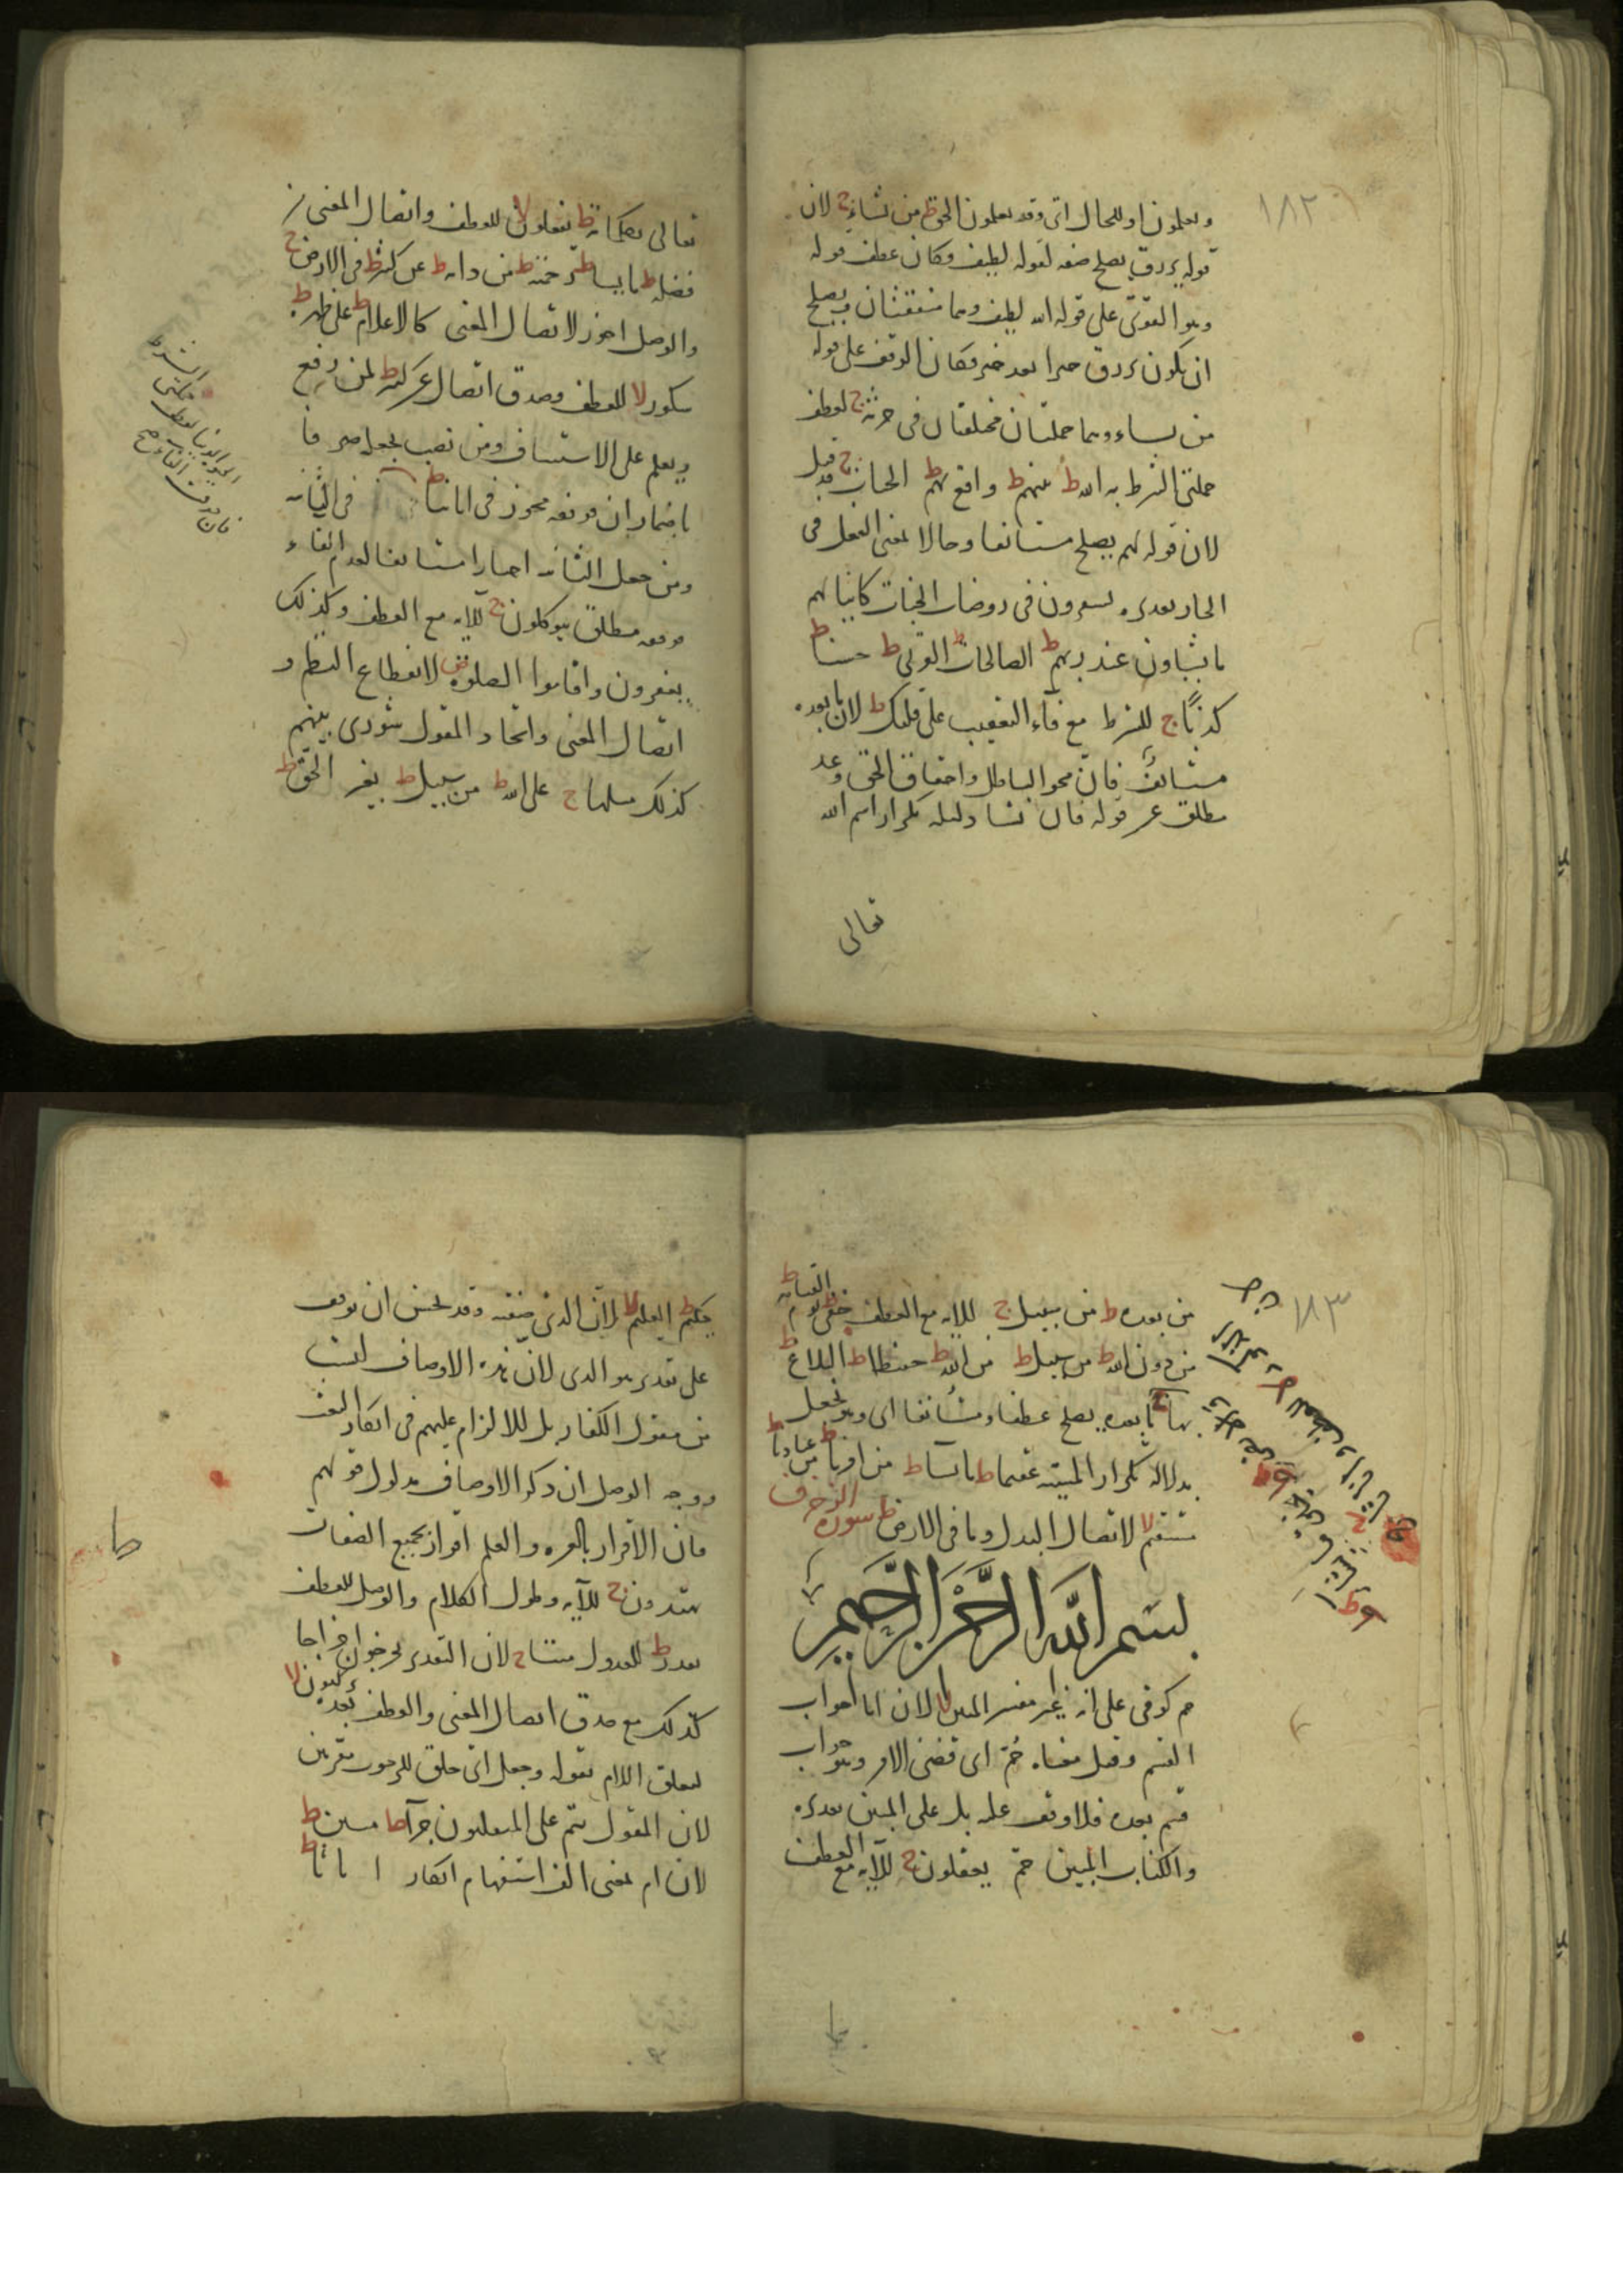 ١٨٢
ويعلمون او للحال اى وقد يعلمون الحق ط من يشاء ج لان
قوله يرزق يصلح صفه لقوله لطيف وكان عطف قوله
وهو القوى على قوله الله لطيف وهما متفقتان ويصلح
ان يكون يرزق خبرا بعد خبر فكان الوقف على قوله
من يشاء وهما جملتان مختلفتان فى حرثه ج لعطف
جملتى الشرط به الله ط بينهم ط واقع بهم ط الجنات ج وقيل
لان قوله لهم يصلح مستانفا وحالا لمعنى الفعل فى
الجار تقديره يستقرون فى روضات الجنات كاينا لهم
ما يشاون عند ربهم ط الصالحات ط القربى ط حسنا ط
كذبا ج للشرط مع فاء التعقيب على قلبك ط لان ما بعده
مستانف فان محو الباطل واحقاق الحق وعد
مطلق عن قوله فان يشا ودليله تكرار اسم الله
تعالى
تعالى بكلماته ط تفعلون لا للعطف واتصال المعنى من
فضله ط ما يشا ط رحمته ط من دابه ط عن كثير ط فى الارض ج
والوصل اجوز لاتصال المعنى كالاعلام ط على ظهره ط
شكور لا للعطف وصدق اتصال عن كثير ط لمن رفع
ويعلم على الاستيناف ومن نصب بجعله صرفا
باضمار ان فوقفه مجوز فى اياتنا ط فى الثانيه
ومن جعل الثانيه اخبارا مستانفا لعدم الفاء
فوقفه مطلق يتوكلون ج للايه مع العطف وكذلك
يغفرون واقاموا الصلوة ص لانقطاع النظم و
اتصال المعنى واتحاد المقول شورى بينهم
كذلك مثلها ج على الله ط من سبيل ط بغير الحق ط
١٨٣
من بعده ط من سبيل ج للايه مع العطف خفى ط يوم القيامه ط
من دون الله ط من سبيل ط من الله ط حفيظا ط البلاغ ط
بها ج ما بعده يصلح عطفا ومستانفا اى وهو يجعل
بدلاله تكرار المشيه عقيما ط ما يشا ط من امرنا ط من عبادنا ط
مستقيم لا لاتصال البدل وما فى الارض ط سورة الزخرف
بسم الله الرحمن الرحيم
حم كوفى على انه غير مفسر المبين لا لان انا جواب
القسم وقيل معناه حم اى قضى الامر وهو جواب
قسم بعده فلا وقف عليه بل على المبين تقديره
والكتاب المبين حم يعقلون ج للآيه مع العطف
حكيم ط العليم لا لان الذى صفته وقد يحسن ان يوقف
على تقدير هو الذى لان هذه الاوصاف ليست
من مقول الكفار بل للالزام عليهم فى انكار البعث
ووجه الوصل ان ذكر الاوصاف مدلول قولهم
فان الاقرار بالعزه والعلم اقرار بجميع الصفات
تهتدون ج للآيه وطول الكلام والوصل للعطف
بقدر ط للعدول ميتا ج لان التقدير تخرجون اخراجا
كذلك مع صدق اتصال المعنى والعطف بعده تركبون لا
لتعلق اللام بقوله وجعل اى خلق للركوب مقرنين
لان المقول يتم على المنقلبون جزآ ط مبين ط
لان ام بمعنى الف استفهام انكار اناثا ط